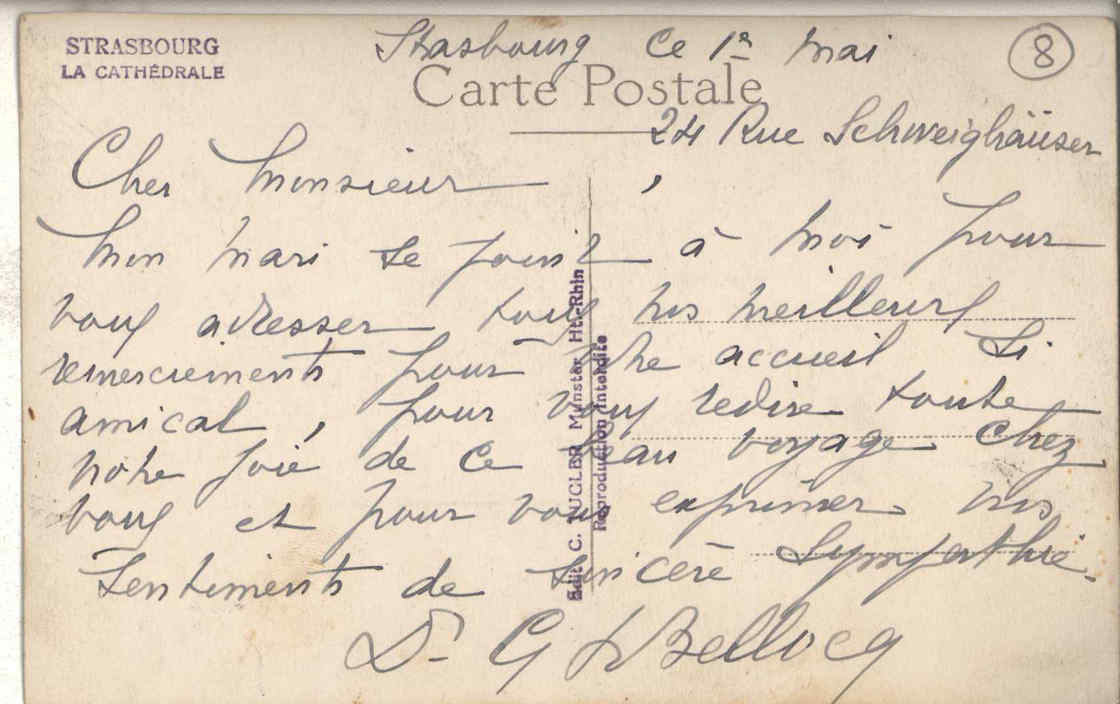 STRASBOURG
LA CATHÉDRALE
Strasbourg Ce 1er Mai
8
Carte Postale
24 Rue Schweighäuser
Cher Monsieur,
Mon mari se joint à moi pour
vous adresser tous nos meilleurs
remerciements pour votre accueil si
amical, pour vous redire toute
notre joie de ce beau voyage chez
vous et pour vous exprimer nos
sentiments de sincère sympathie.
Dr G Bellocq
Edit. C. BUGLER Munster Ht.-Rhin
Reproduction interdite